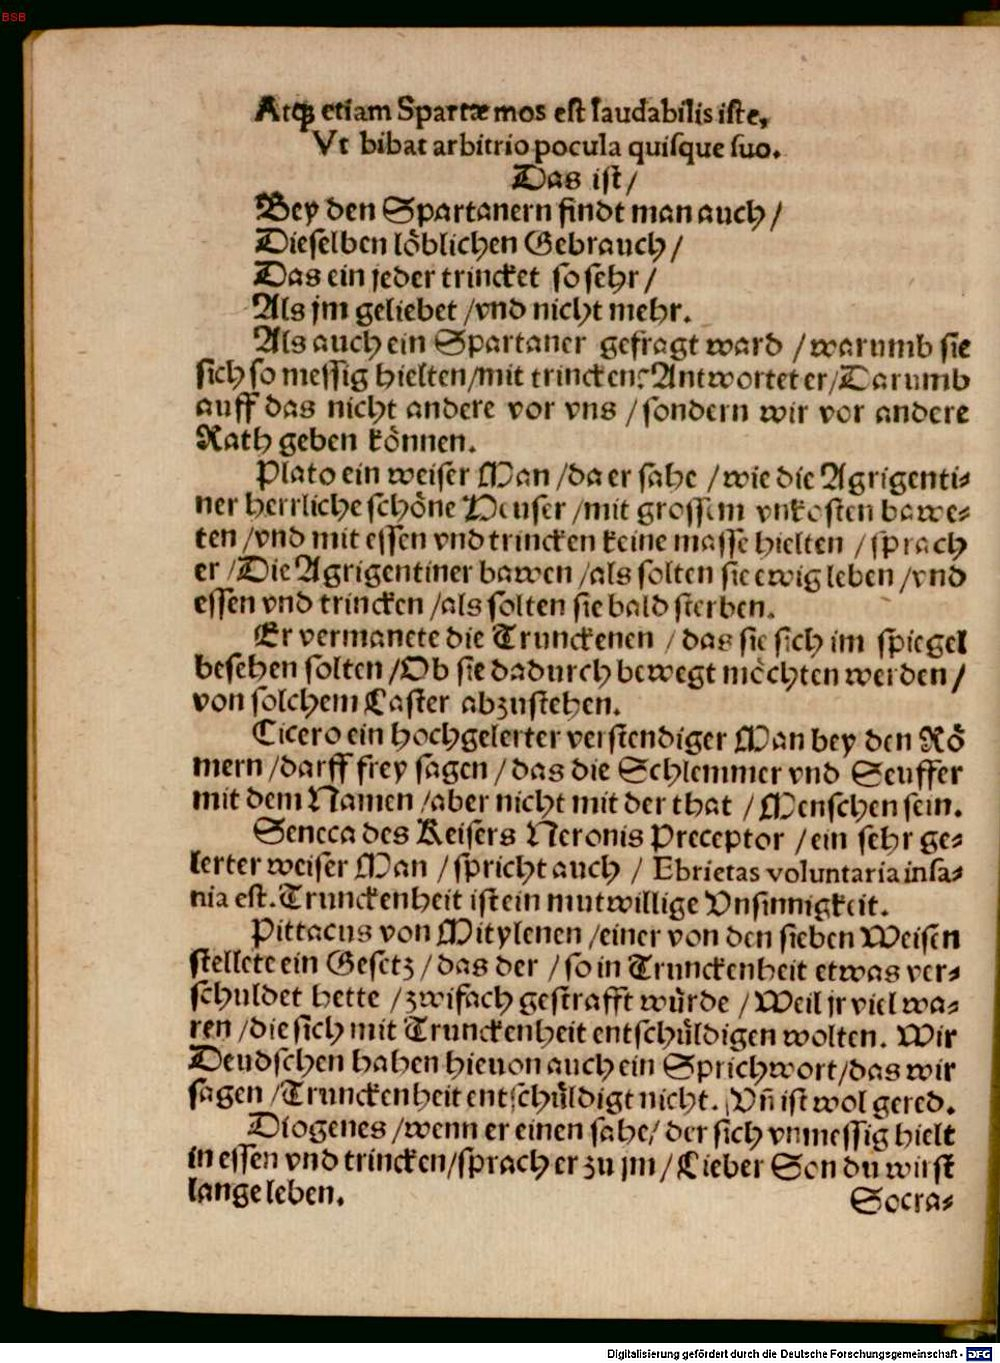 BSB
Atq́ꝫ etiam Spartæ mos est laudabilis iste,
Vt bibat arbitrio pocula quisque suo.
Das ist /
Bey den Spartanern findt man auch /
Dieselben loͤblichen Gebrauch /
Das ein jeder trincket so sehr /
Als jm geliebet / vnd nicht mehr.
Als auch ein Spartaner gefragt ward / warumb sie
sich so messig hielten / mit trincken? Antwortet er / Darumb
auff das nicht andere vor vns / sondern wir vor andere
Rath geben koͤnnen.
Plato ein weiser Man / da er sahe / wie die Agrigenti-
ner herrliche schoͤne Heuser / mit grossem vnkosten bawe-
ten / vnd mit essen vnd trincken keine masse hielten / sprach
er / Die Agrigentiner bawen / als solten sie ewig leben / vnd
essen vnd trincken / als solten sie bald sterben.
Er vermanete die Trunckenen / das sie sich im spiegel
besehen solten / Ob sie dadurch bewegt moͤchten werden /
von solchem Laster abzustehen.
Cicero ein hochgelerter verstendiger Man bey den Roͤ
mern / darff frey sagen / das die Schlemmer vnd Seuffer
mit dem Namen / aber nicht mit der that / Menschen sein.
Seneca des Keisers Neronis Preceptor / ein sehr ge-
lerter weiser Man / spricht auch / Ebrietas voluntaria insa-
nia est. Trunckenheit ist ein mutwillige Vnsinnigkeit.
Pittacus von Mitylenen / einer von den sieben Weisen
stellete ein Gesetz / das der / so in Trunckenheit etwas ver-
schuldet hette / zwifach gestrafft wuͤrde / Weil jr viel wa-
ren / die sich mit Trunckenheit entschuͤldigen wolten. Wir
Deudschen haben hieuon auch ein Sprichwort / das wir
sagen / Trunckenheit entschuͤldigt nicht. Vñ ist wol gered.
Diogenes / wenn er einen sahe / der sich vnmessig hielt
in essen vnd trincken / sprach er zu jm / Lieber Son du wirst
lange leben.
Socra-
Digitalisierung gefördert durch die Deutsche Forschungsgemeinschaft - DFG